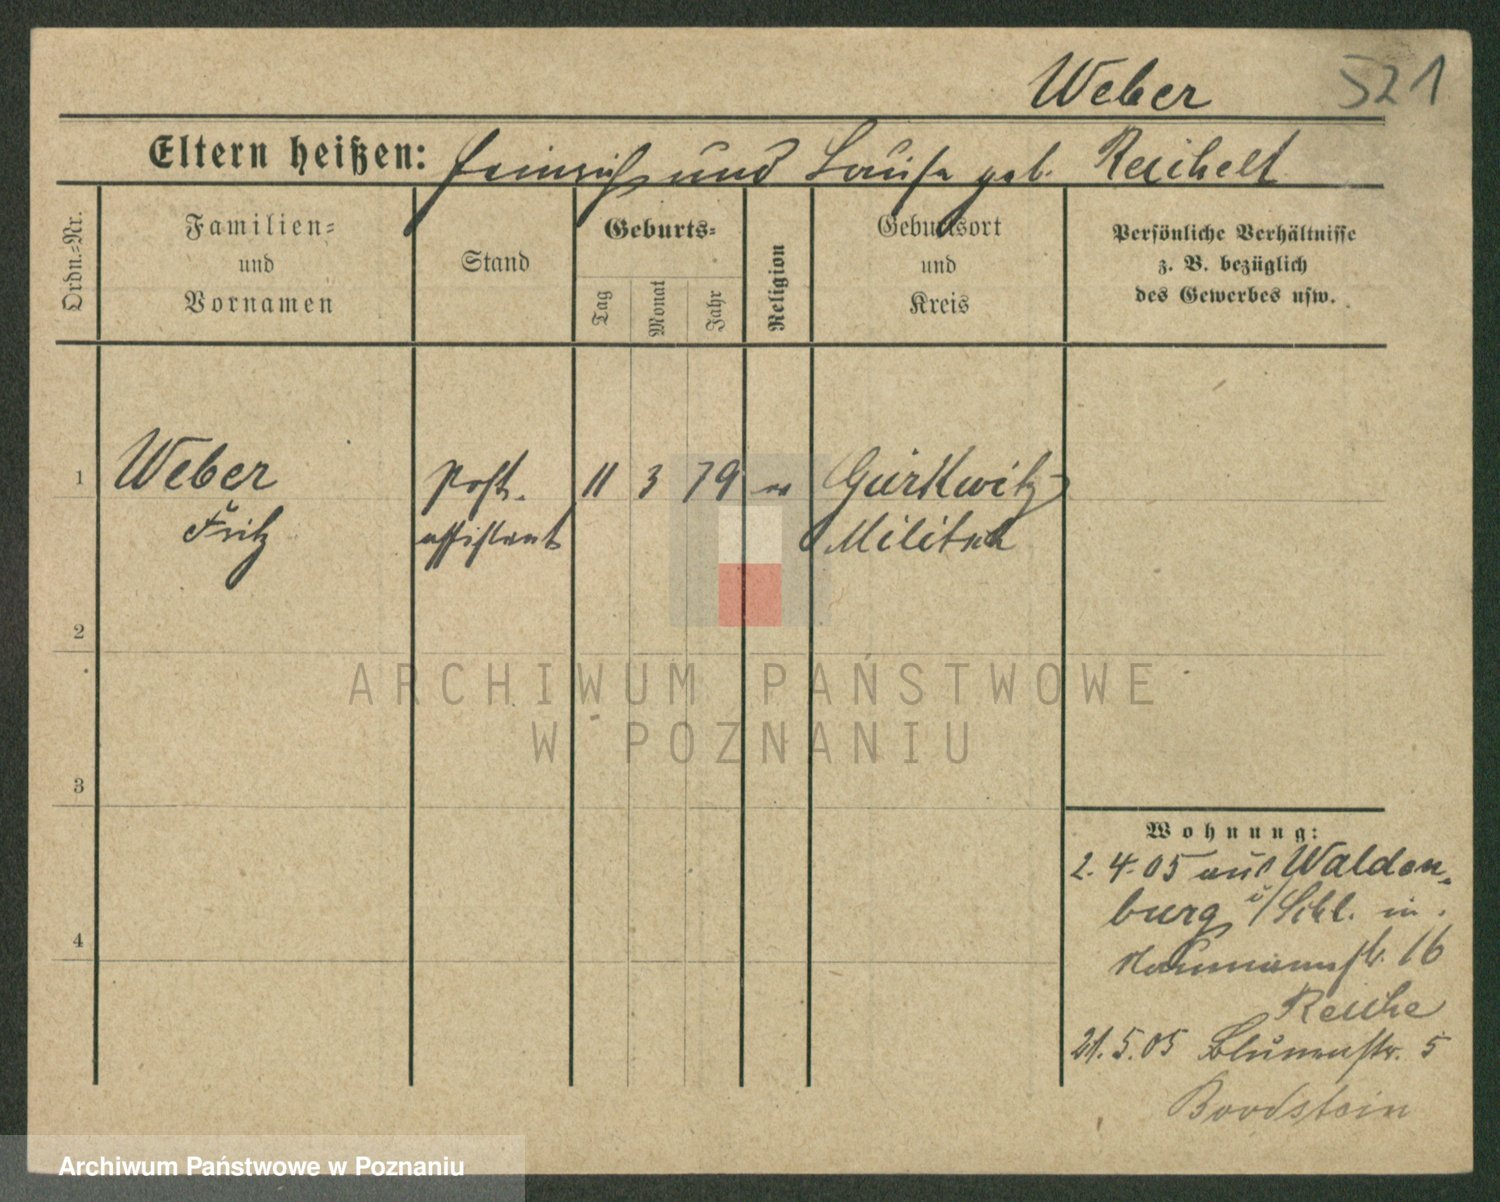 Weber 521
Eltern heißen: Heinrich und Louise geb. Reichelt
Ordn.-Nr.
Familien-
und
Vornamen
Stand
Geburts-
Tag
Monat
Jahr
Religion
Geburtsort
und
Kreis
Persönliche Verhältnisse
z. B. bezüglich
des Gewerbes usw.
1 Weber Post- 11 3 79 ev Gürkwitz
Fritz assistent Militsch
2
3
4
Wohnung:
2.4.05 aus Walden-
burg i/Schl. in
Naumannstr. 16
Reiche
21.5.05 Blumenstr. 5
Bordstein
ARCHIWUM PAŃSTWOWE
W POZNANIU
Archiwum Państwowe w Poznaniu